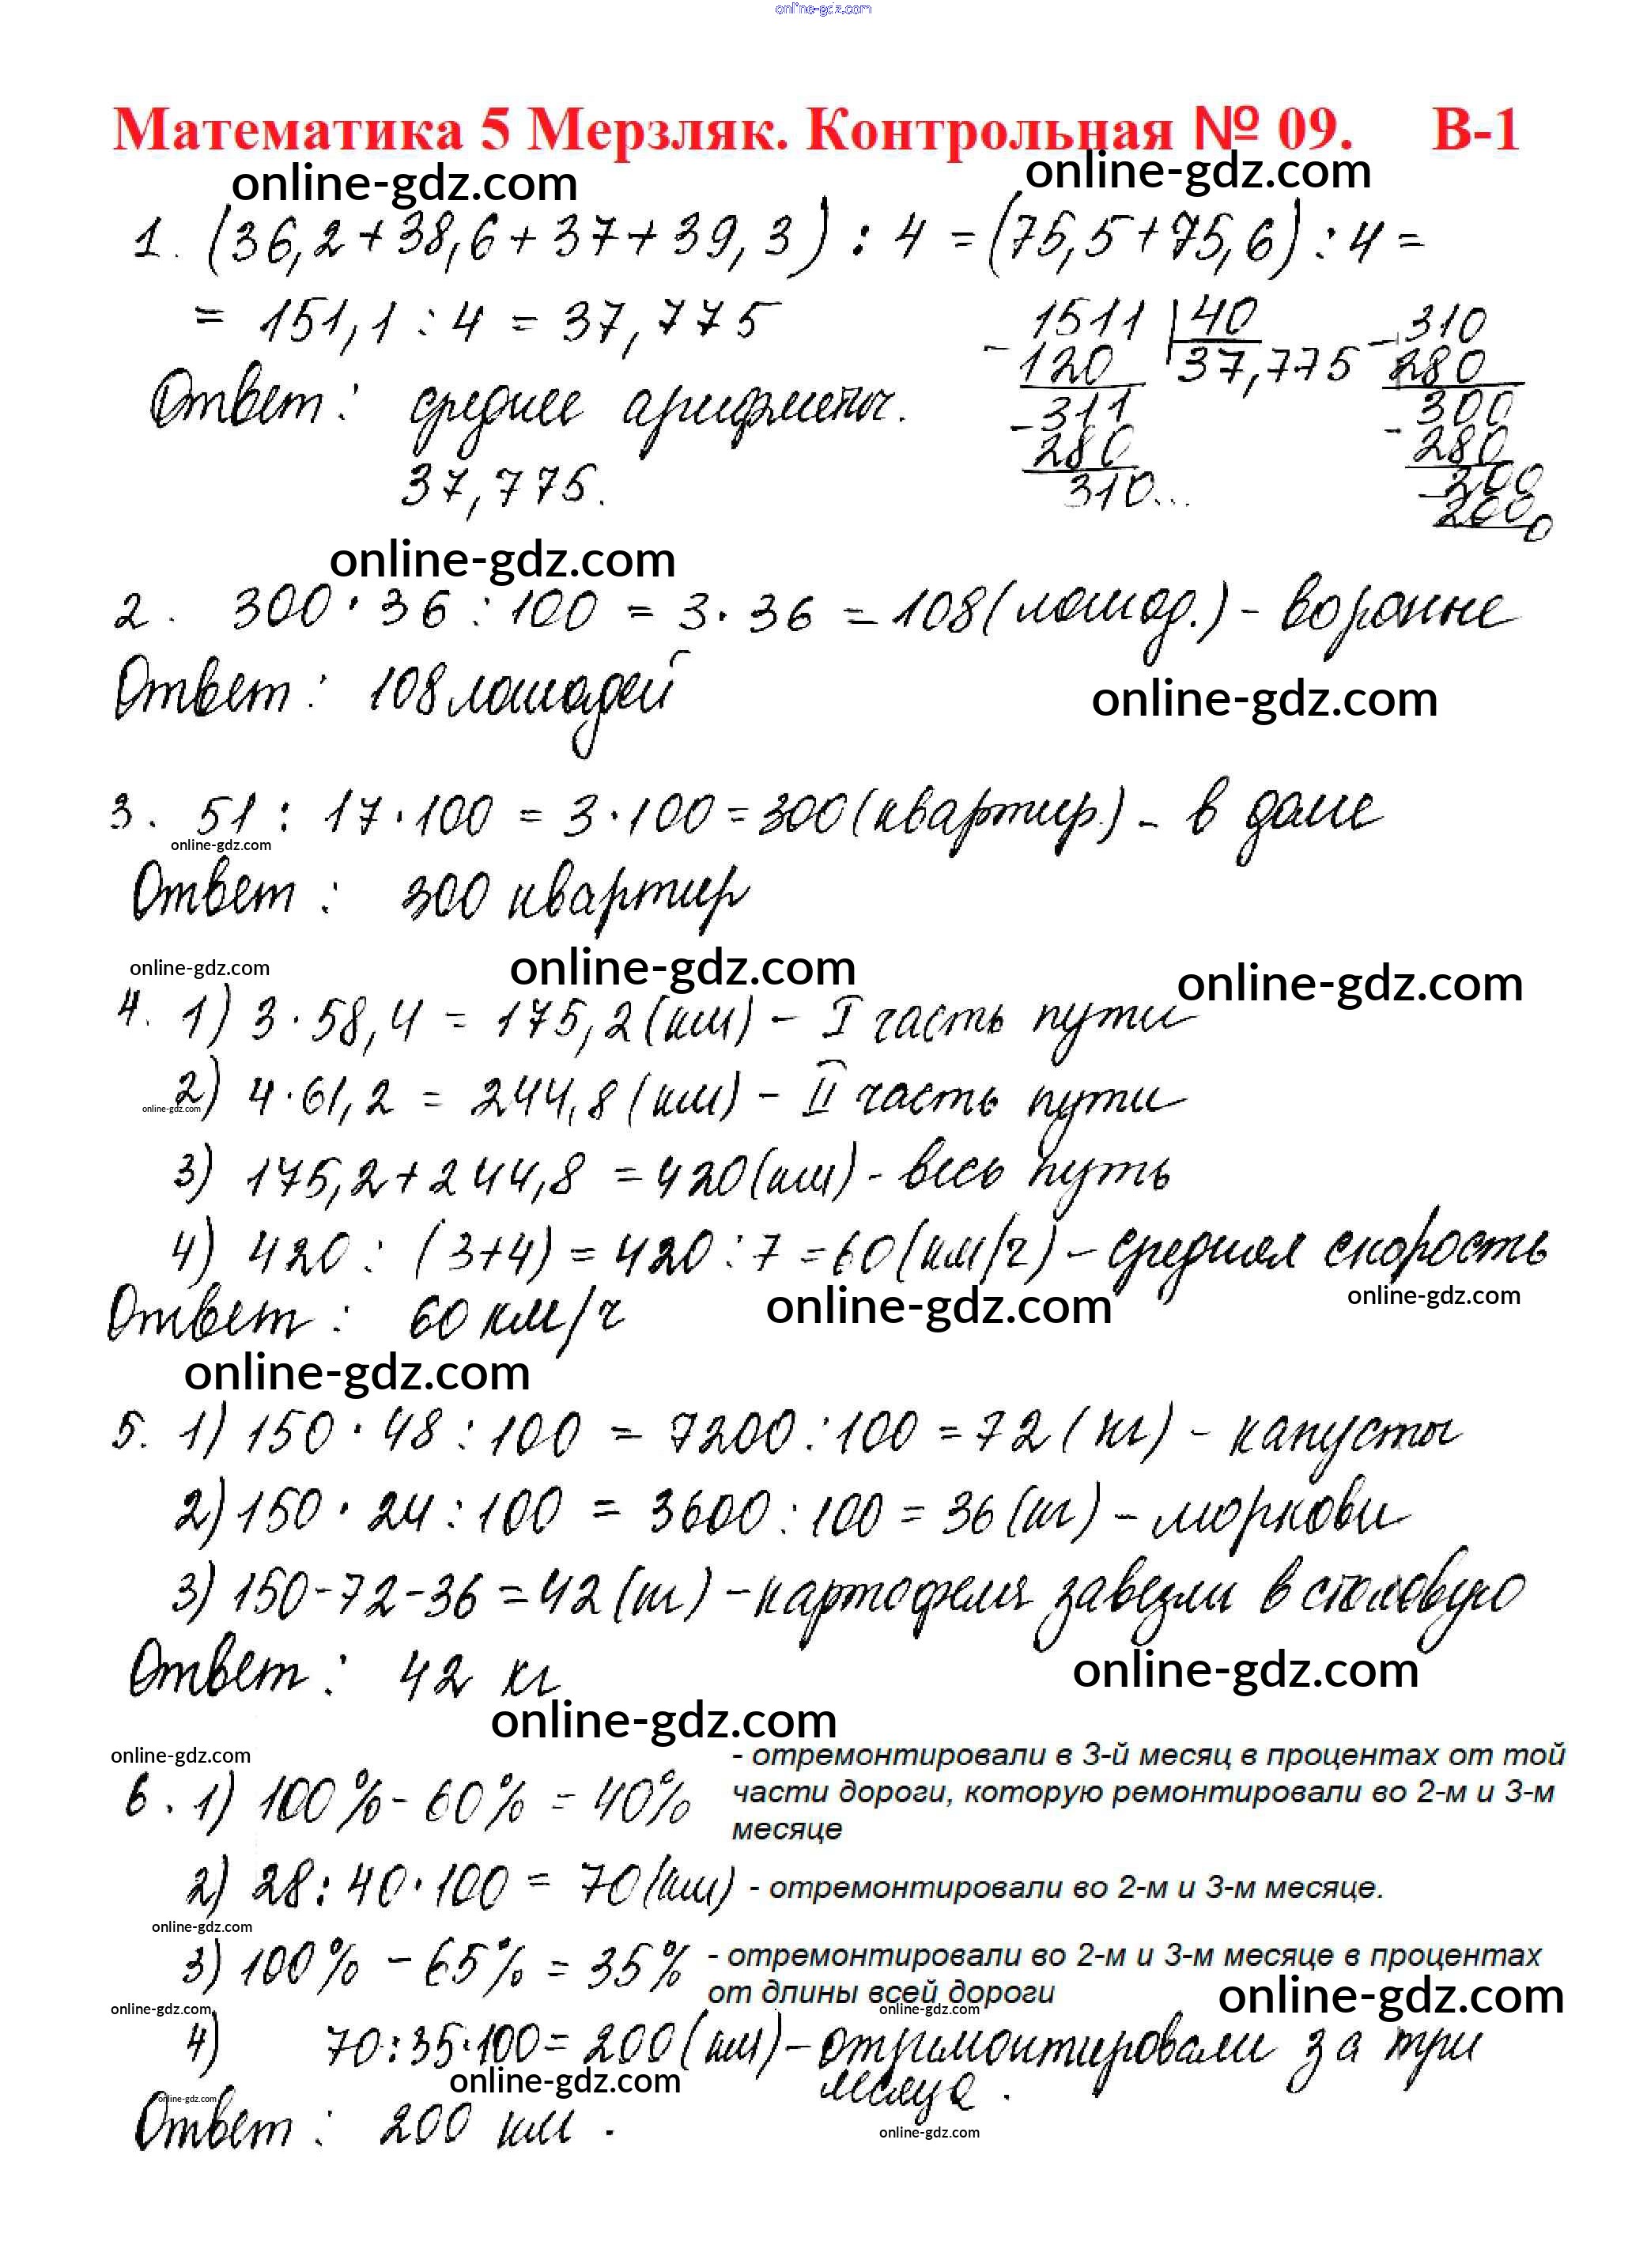 online-gdz.com
Математика 5 Мерзляк. Контрольная № 09. В-1
online-gdz.com online-gdz.com
1. (36,2+38,6+37+39,3) : 4 = (75,5+75,6) : 4 =
= 151,1 : 4 = 37,775
Ответ: среднее арифметич.
37,775.
1511 | 40
- 120 37,775
- 311
280
310...
- 310
280
- 300
280
- 200
200
0
online-gdz.com
2. 300 · 36 : 100 = 3 · 36 = 108 (лошад.) - вороные
Ответ: 108 лошадей
online-gdz.com
3. 51 : 17 · 100 = 3 · 100 = 300 (квартир.) - в доме
online-gdz.com
Ответ: 300 квартир
online-gdz.com online-gdz.com online-gdz.com
4. 1) 3 · 58,4 = 175,2 (км) - I часть пути
2) 4 · 61,2 = 244,8 (км) - II часть пути
online-gdz.com
3) 175,2 + 244,8 = 420 (км) - весь путь
4) 420 : (3+4) = 420 : 7 = 60 (км/ч) - средняя скорость
Ответ: 60 км/ч
online-gdz.com online-gdz.com
online-gdz.com
5. 1) 150 · 48 : 100 = 7200 : 100 = 72 (кг) - капусты
2) 150 · 24 : 100 = 3600 : 100 = 36 (кг) - моркови
3) 150 - 72 - 36 = 42 (кг) - картофеля завезли в столовую
Ответ: 42 кг
online-gdz.com
online-gdz.com
online-gdz.com
6. 1) 100% - 60% = 40%
- отремонтировали в 3-й месяц в процентах от той
части дороги, которую ремонтировали во 2-м и 3-м
месяце
2) 28 : 40 · 100 = 70 (км) - отремонтировали во 2-м и 3-м месяце.
online-gdz.com
3) 100% - 65% = 35%
- отремонтировали во 2-м и 3-м месяце в процентах
от длины всей дороги
online-gdz.com
online-gdz.com online-gdz.com
4) 70 : 35 · 100 = 200 (км) - отримонтировали за три
месяца.
online-gdz.com
online-gdz.com
Ответ: 200 км.
online-gdz.com